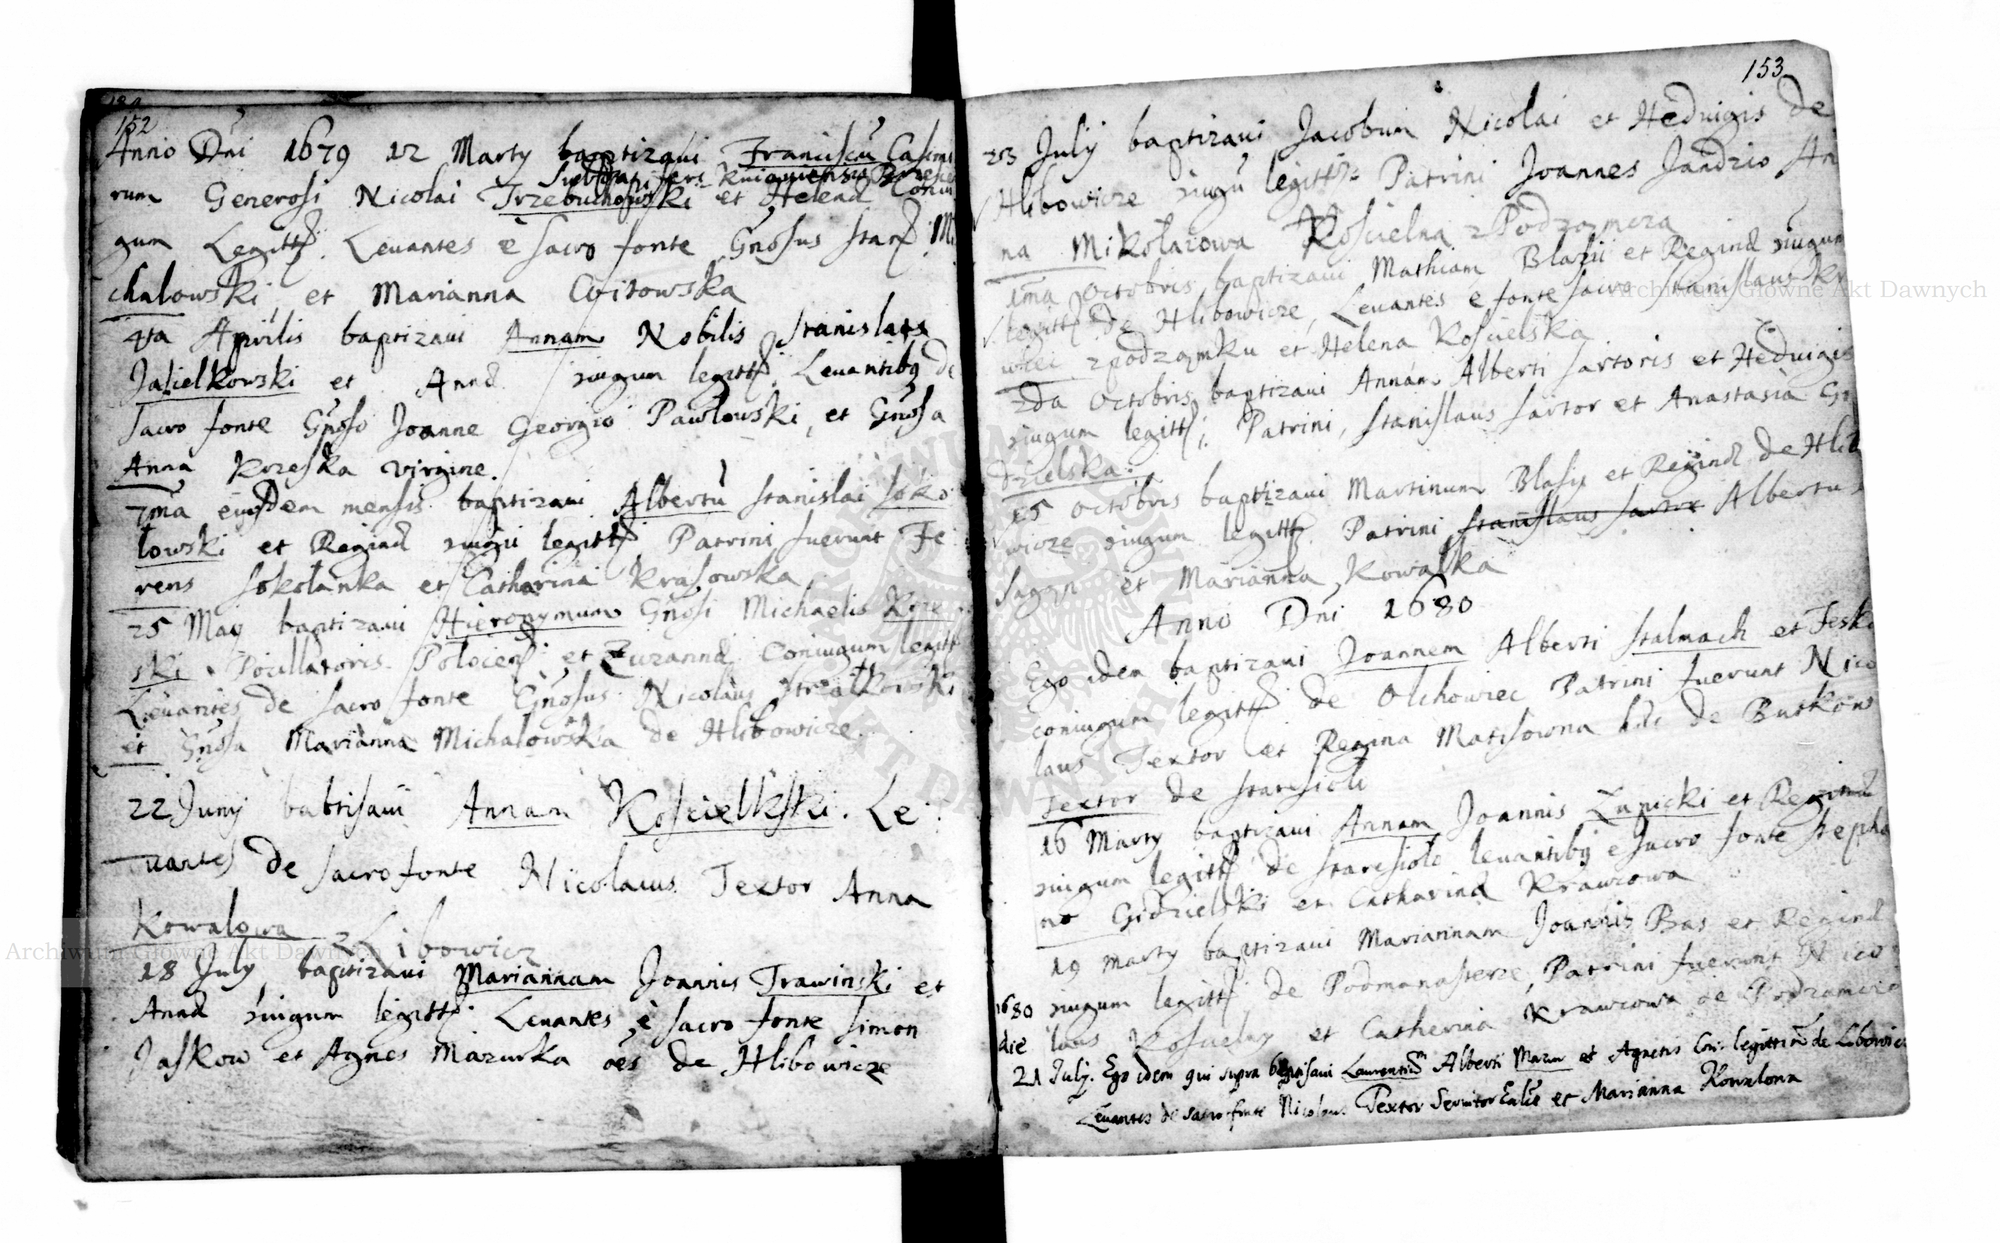 152
Anno Dni 1679 12 Marty baptizaui Franciscu Casimi
rum Generosi Nicolai Trzebuchowski et Helenae Coniu
gum Legitt. Leuantes è sacro fonte Gnosus Stan. Mi
chalowski et Marianna Coitowska
4ta Aprilis baptizaui Annam Nobilis Stanislai
Jasielkowski et Annae iugum legitt. Leuantibq de
sacro fonte Gnoso Joanne Georgio Pawlowski, et Gnosa
Anna Krzeska virgine.
7ma eiusdem mensis baptizaui Albertu Stanislai Soko
lowski et Reginae iugu legitt. Patrini fuerunt Fe
rens Sokolanka et Catharina Krasowska
25 May baptizaui Hieronymum Gnosi Michaelis Krze
ski et Zuzannae Coniugum legitt
Leuantes de sacro fonte Gnosus Nicolaus Strzalkowski
et Gnosa Marianna Michalowska de Hlibowicze.
22 Juny babtisaui Annam Koscielkski. Le
uantes de sacro fonte Nicolaius Textor Anna
Kowalowa z Libowicz
18 July baptizaui Mariannam Joannis Trawinski et
Annae iugum legitt. Leuantes è sacro fonte Simon
Jaskow et Agnes Mazurka oes de Hlibowicze
153
23 July baptizaui Jacobum Nicolai et Heduigis de
Hlibowicze iugu legitt. Patrini Joannes Jandzio An
na Mikolaiowa Koscielna z Podzamcza
1ma Octobris baptizaui Mathiam Blasii et Reginae iugum
legitt de Hlibowicze, Leuantes è fonte sacro Stanislaus Kra
wiec z podzamku et Helena Koscielska
2da Octobris baptizaui Annam Alberti Sartoris et Heduigis
iugum legitt. Patrini, Stanislaus Sartor et Anastasia Go
dzielska.
15 Octobris baptizaui Martinum Blasy et Reginae de Hlibo
wicze iugum legitt Patrini Stanislaus Sartor Albertu
et Marianna Kowalka
Anno Dni 1680
Ego idem baptizaui Joannem Alberti Stalmach et Feska
coniugum legitt de Olchowiec Patrini fuerunt Nico
laus Textor et Regina Matysowna de Butkow
Textor de Staresioli
16 Marty baptizaui Annam Joannis Lunicki et Reginae
iugum legitt de Staresiolo leuantibq è sacro fonte Stepha
no Gidzielski et Catharina Krawcowa
19 marty baptizaui Mariannam Joannis Bas et Reginae
iugum legitt de Podmonasterze, Patrini fuerunt Nico
laus Koscielny et Catherina Krawcowa de Podzamcze
1680
die
21 Julj. Ego idem qui supra baptisaui Laurentium Alberti Mazur et Agnetis Con: legittim de Libowicz
Leuantes de sacro fonte Nicolaus Textor Seruitor Eccles et Marianna Kowalowa
Archiwum Główne Akt Dawnych
Archiwum Główne Akt Dawnych